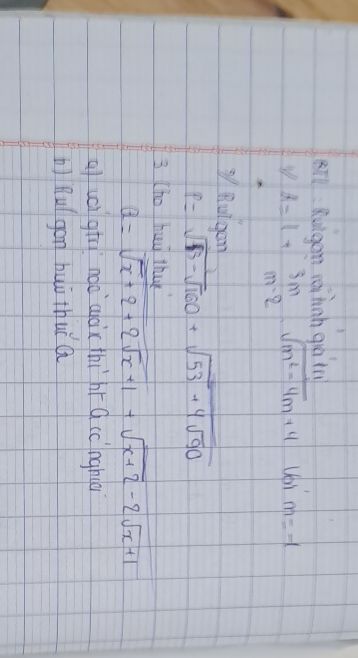 BT1: Rút gọn và tính giá trị
1/ A = 1 + 3m/(m-2) √(m² - 4m + 4) Với m = -1
2/ Rút gọn
P = √(53 - √160) + √(53 + 4√90)
3 Cho biểu thức
Q = √(x + 2 + 2√(x+1)) + √(x + 2 - 2√(x+1))
a) với gtrị nào của x thì bt Q có nghĩa
b) Rút gọn biểu thức Q